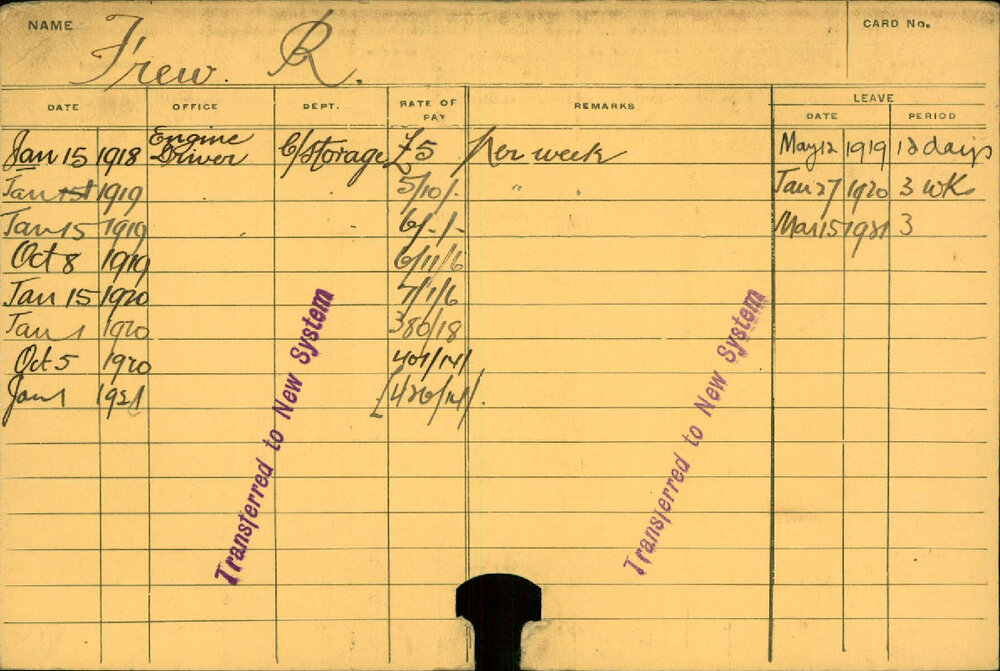 NAME Frew. R. CARD No.
DATE OFFICE DEPT. RATE OF PAY REMARKS LEAVE
DATE PERIOD
Jan 15 1918 Engine Driver C/Storage £5 per week May 12 1919 12 days
Jan 1st 1919 5/10/- " Jan 27 1920 3 WKs
Jan 15 1919 6/-/- Mar 15 1921 3
Oct 8 1919 6/11/6
Jan 15 1920 7/1/6
Jan 1 1920 380/18
Oct 5 1920 401/14/
Jan 1 1921 [426/14/.
Transferred to New System
Transferred to New System